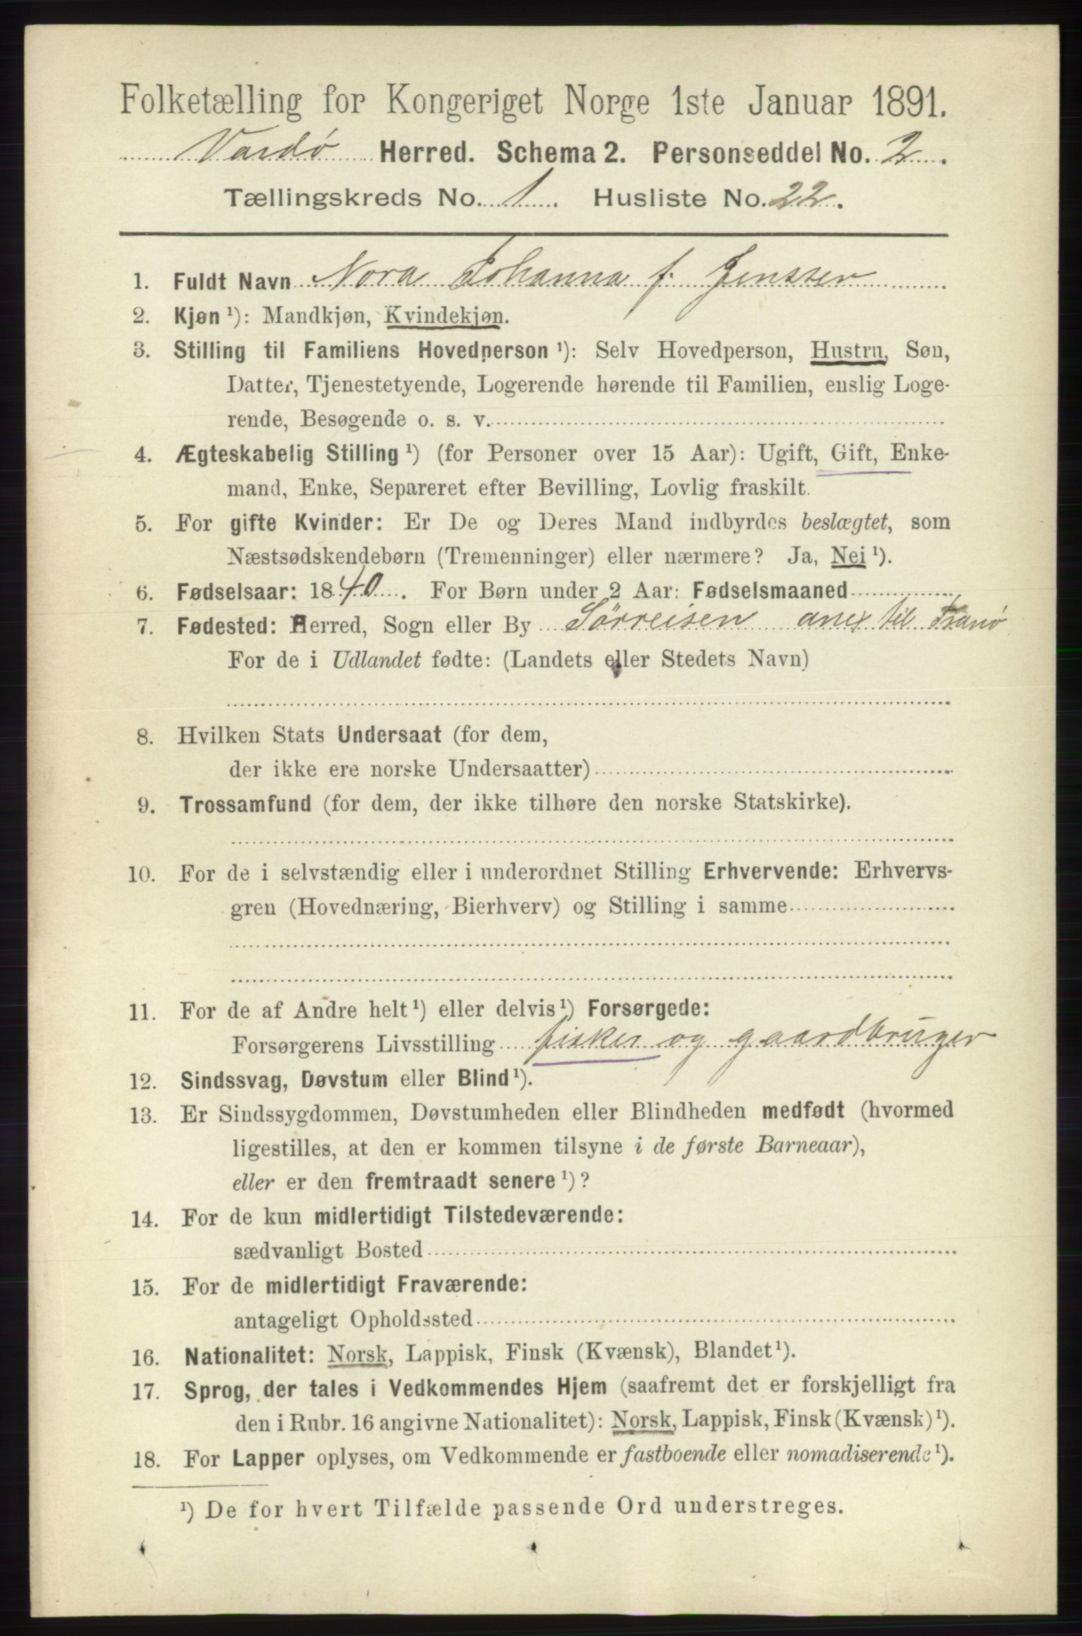 Folketælling for Kongeriget Norge 1ste Januar 1891.
Vardø Herred. Schema 2. Personseddel No. 2.
Tællingskreds No. 1. Husliste No. 22.
1. Fuldt Navn Nora Johanna f. Jenssen
2. Kjøn ¹): Mandkjøn, Kvindekjøn.
3. Stilling til Familiens Hovedperson ¹): Selv Hovedperson, Hustru, Søn,
Datter, Tjenestetyende, Logerende hørende til Familien, enslig Loge-
rende, Besøgende o. s. v.
4. Ægteskabelig Stilling ¹) (for Personer over 15 Aar): Ugift, Gift, Enke-
mand, Enke, Separeret efter Bevilling, Lovlig fraskilt.
5. For gifte Kvinder: Er De og Deres Mand indbyrdes beslægtet, som
Næstsødskendebørn (Tremenninger) eller nærmere? Ja, Nei ¹).
6. Fødselsaar: 1840. For Børn under 2 Aar: Fødselsmaaned
7. Fødested: Herred, Sogn eller By Sørreisen anex til Tranø
For de i Udlandet fødte: (Landets eller Stedets Navn)
8. Hvilken Stats Undersaat (for dem,
der ikke ere norske Undersaatter)
9. Trossamfund (for dem, der ikke tilhøre den norske Statskirke).
10. For de i selvstændig eller i underordnet Stilling Erhvervende: Erhvervs-
gren (Hovednæring, Bierhverv) og Stilling i samme
11. For de af Andre helt ¹) eller delvis ¹) Forsørgede:
Forsørgerens Livsstilling fisker og gaardbruger
12. Sindssvag, Døvstum eller Blind ¹).
13. Er Sindssygdommen, Døvstumheden eller Blindheden medfødt (hvormed
ligestilles, at den er kommen tilsyne i de første Barneaar),
eller er den fremtraadt senere ¹)?
14. For de kun midlertidigt Tilstedeværende:
sædvanligt Bosted
15. For de midlertidigt Fraværende:
antageligt Opholdssted
16. Nationalitet: Norsk, Lappisk, Finsk (Kvænsk), Blandet ¹).
17. Sprog, der tales i Vedkommendes Hjem (saafremt det er forskjelligt fra
den i Rubr. 16 angivne Nationalitet): Norsk, Lappisk, Finsk (Kvænsk) ¹).
18. For Lapper oplyses, om Vedkommende er fastboende eller nomadiserende ¹).
¹) De for hvert Tilfælde passende Ord understreges.